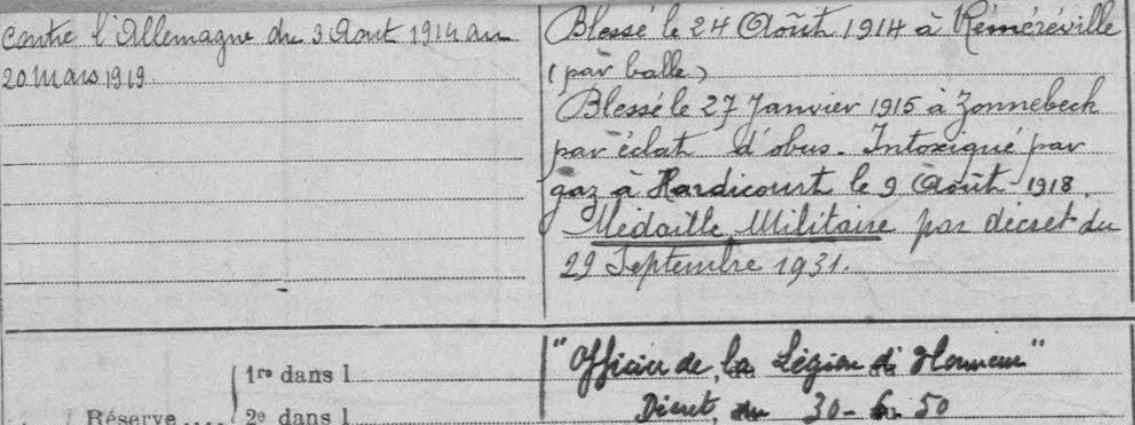 contre l'Allemagne du 3 Aout 1914 au
20 Mars 1919
Blessé le 24 Août 1914 à Réméréville
(par balle)
Blessé le 27 Janvier 1915 à Zonnebeck
par éclat d'obus. Intoxiqué par
gaz à Hardicourt le 9 Août 1918.
Médaille Militaire par décret du
29 Septembre 1931.
1re dans l
Réserve .... 2e dans l
"Officier de la Légion d'Honneur"
Décret du 30-6-50